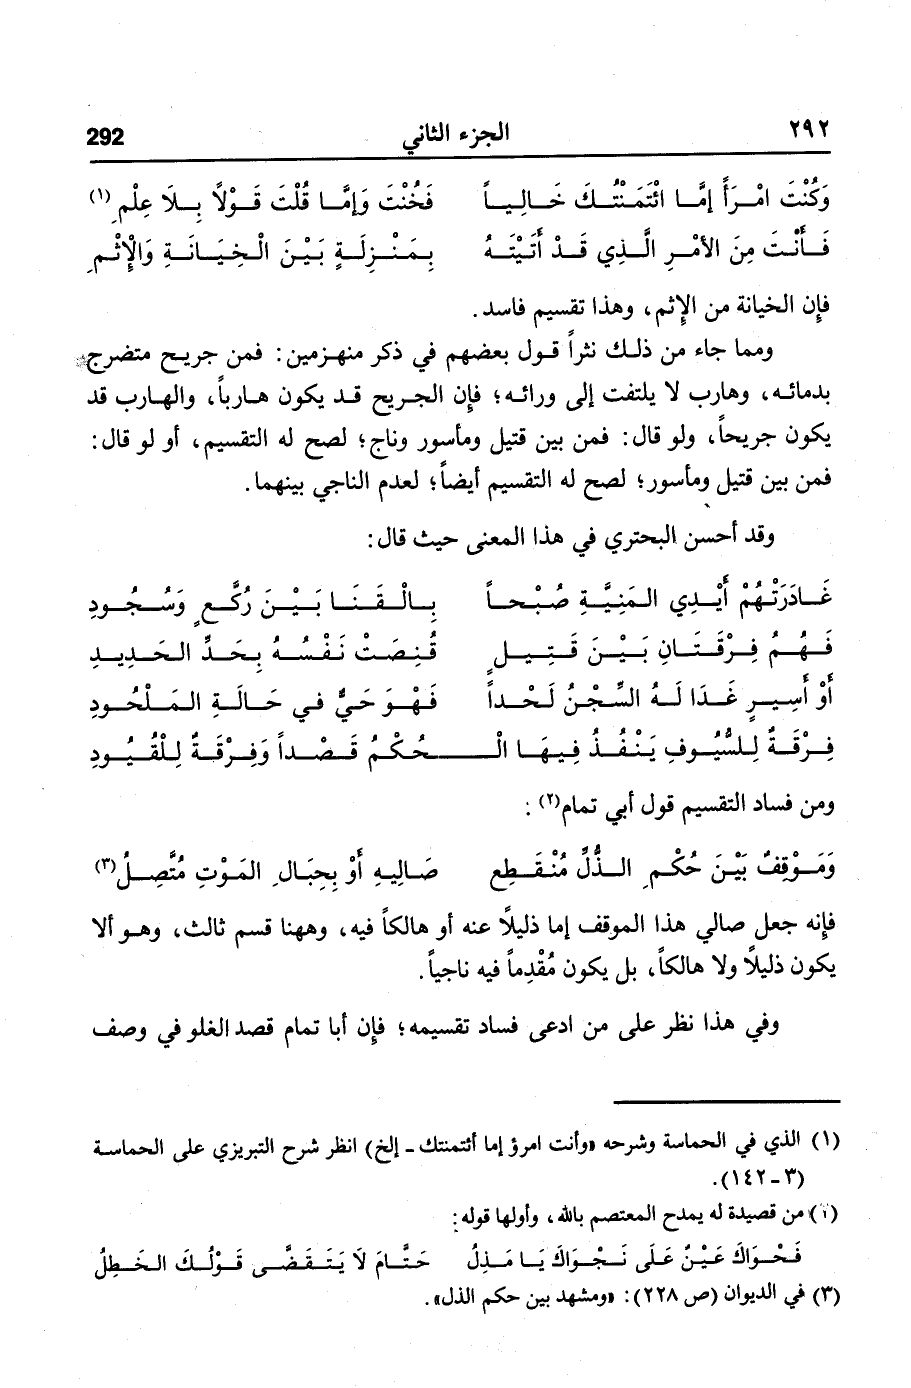 ٢٩٢ الجزء الثاني 292
وَكُنْتَ امْرَأً إِمَّا ائْتَمَنْتُكَ خَالِياً فَخُنْتَ وَإِمَّا قُلْتَ قَوْلاً بِلاَ عِلْمِ(١)
فَأَنْتَ مِنَ الأَمْرِ الَّذِي قَدْ أَتَيْتَهُ بِمَنْزِلَةٍ بَيْنَ الْخِيَانَةِ وَالإِثْمِ
فإن الخيانة من الإثم، وهذا تقسيم فاسد.
ومما جاء من ذلك نثراً قول بعضهم في ذكر منهزمين: فمن جريح متضرج
بدمائه، وهارب لا يلتفت إلى ورائه؛ فإن الجريح قد يكون هارباً، والهارب قد
يكون جريحاً، ولو قال: فمن بين قتيل ومأسور وناج؛ لصح له التقسيم، أو لو قال:
فمن بين قتيل ومأسور؛ لصح له التقسيم أيضاً؛ لعدم الناجي بينهما.
وقد أحسن البحتري في هذا المعنى حيث قال:
غَادَرَتْهُمْ أَيْدِي المَنِيَّةِ صُبْحاً بِالْقَنَا بَيْنَ رُكَّعٍ وَسُجُودِ
فَهُمُ فِرْقَتَانِ بَيْنَ قَتِيلٍ قُنِصَتْ نَفْسُهُ بِحَدِّ الحَدِيدِ
أَوْ أَسِيرٍ غَدَا لَهُ السِّجْنُ لَحْداً فَهْوَ حَيٌّ فِي حَالَةِ المَلْحُودِ
فِرْقَةٌ لِلسُّيُوفِ يَنْفُذُ فِيهَا الْـحُكْمُ قَصْداً وَفِرْقَةٌ لِلْقُيُودِ
ومن فساد التقسيم قول أبي تمام(٢):
وَمَوْقِفٌ بَيْنَ حُكْمِ الذُّلِّ مُنْقَطِع صَالِيهِ أَوْ بِحِبَالِ المَوْتِ مُتَّصِلُ(٣)
فإنه جعل صالي هذا الموقف إما ذليلاً عنه أو هالكاً فيه، وههنا قسم ثالث، وهو ألا
يكون ذليلاً ولا هالكاً، بل يكون مُقْدِماً فيه ناجياً.
وفي هذا نظر على من ادعى فساد تقسيمه؛ فإن أبا تمام قصد الغلو في وصف
(١) الذي في الحماسة وشرحه «وأنت امرؤ إما أئتمنتك ـ إلخ) انظر شرح التبريزي على الحماسة
(٣ ـ ١٤٢).
(٢) من قصيدة له يمدح المعتصم بالله، وأولها قوله:
فَحْوَاكَ عَيْنٌ عَلَى نَجْوَاكَ يَا مَذِلُ حَتَّامَ لاَ يَتَقَضَّى قَوْلُكَ الخَطِلُ
(٣) في الديوان (ص ٢٢٨): «ومشهد بين حكم الذل».